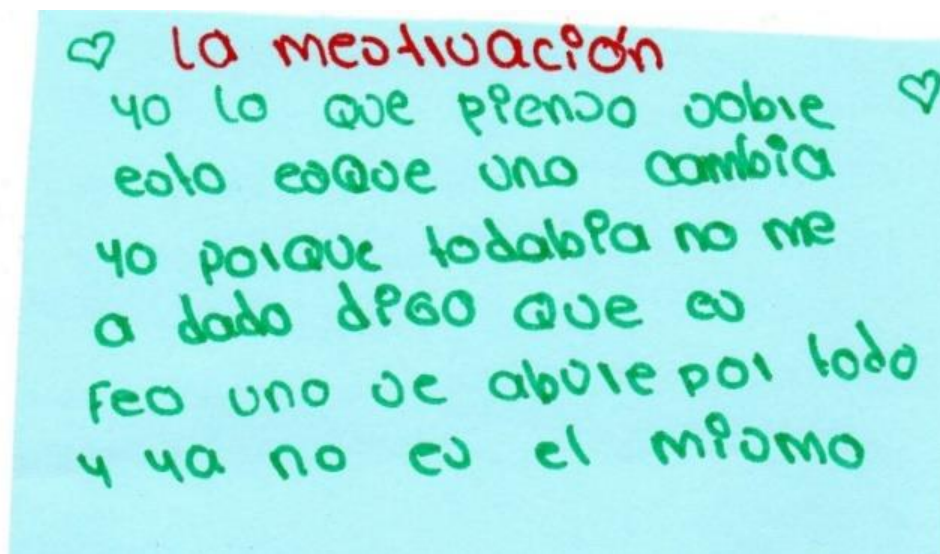 la mestruación
yo lo que pienso sobre
esto esque uno cambia
yo porque todabia no me
a dado digo que es
Feo uno se aburre por todo
y ya no es el mismo